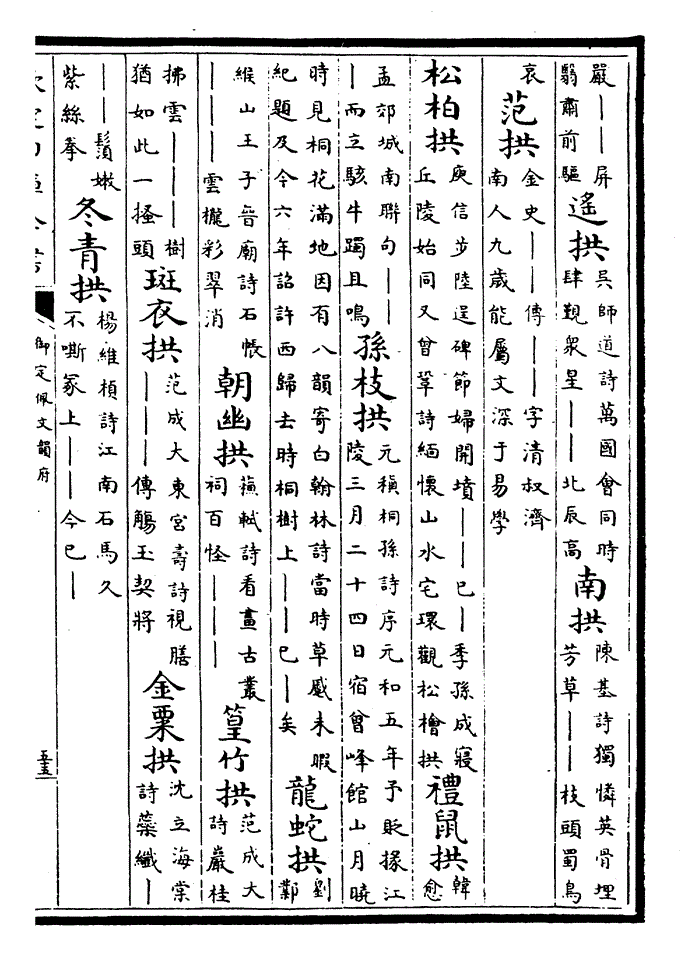 嚴——屏
翳肅前驅
遙拱
吳師道詩萬國會同時
肆覲衆星——北辰高
南拱
陳基詩獨憐英骨埋
芳草——枝頭蜀鳥
哀
范拱
金史——傳——字清叔濟
南人九歲能屬文深于易學
松柏拱
庾信步陸逞碑節婦開墳——已—季孫成寢
丘陵始同又曾鞏詩緬懷山水宅環觀松檜拱
禮鼠拱
韓
愈
孟郊城南聯句——
—而立駭牛躅且鳴
孫枝拱
元稹桐孫詩序元和五年予貶掾江
陵三月二十四日宿曾峰館山月曉
時見桐花滿地因有八韻寄白翰林詩當時草蹙未暇
紀題及今六年詔許西歸去時桐樹上——已—矣
龍蛇拱
劉
鄴
緱山王子晉廟詩石帳
———雲櫳彩翠消
朝幽拱
蘇軾詩看畫古叢
祠百怪———
篁竹拱
范成大
詩巖桂
拂雲———樹
猶如此一搔頭
斑衣拱
范成大東宮壽詩視膳
———傳觴玉契將
金粟拱
沈立海棠
詩蘂纖—
——鬚嫩
紫絲拳
冬青拱
楊維楨詩江南石馬久
不嘶冢上——今已—
御定佩文韻府